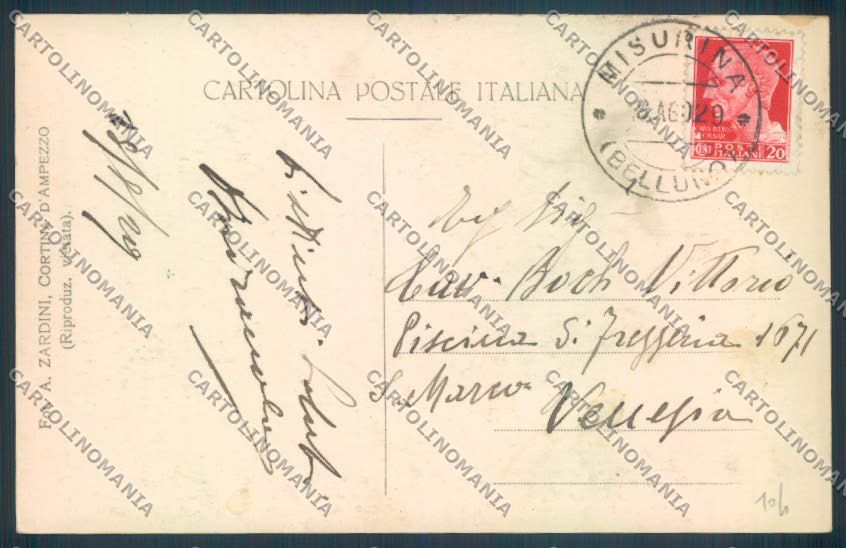 CARTOLINA POSTALE ITALIANA
MISURINA
AGO.29
(BELLUNO)
POSTE
ITALIANE 20
Fot. A. ZARDINI, CORTINA D'AMPEZZO
(Riproduz. vietata).
Distinti Saluti
Cav. Boch Vittorio
Piscina di Frezzeria 1671
S. Marco
Venezia
CARTOLINOMANIA